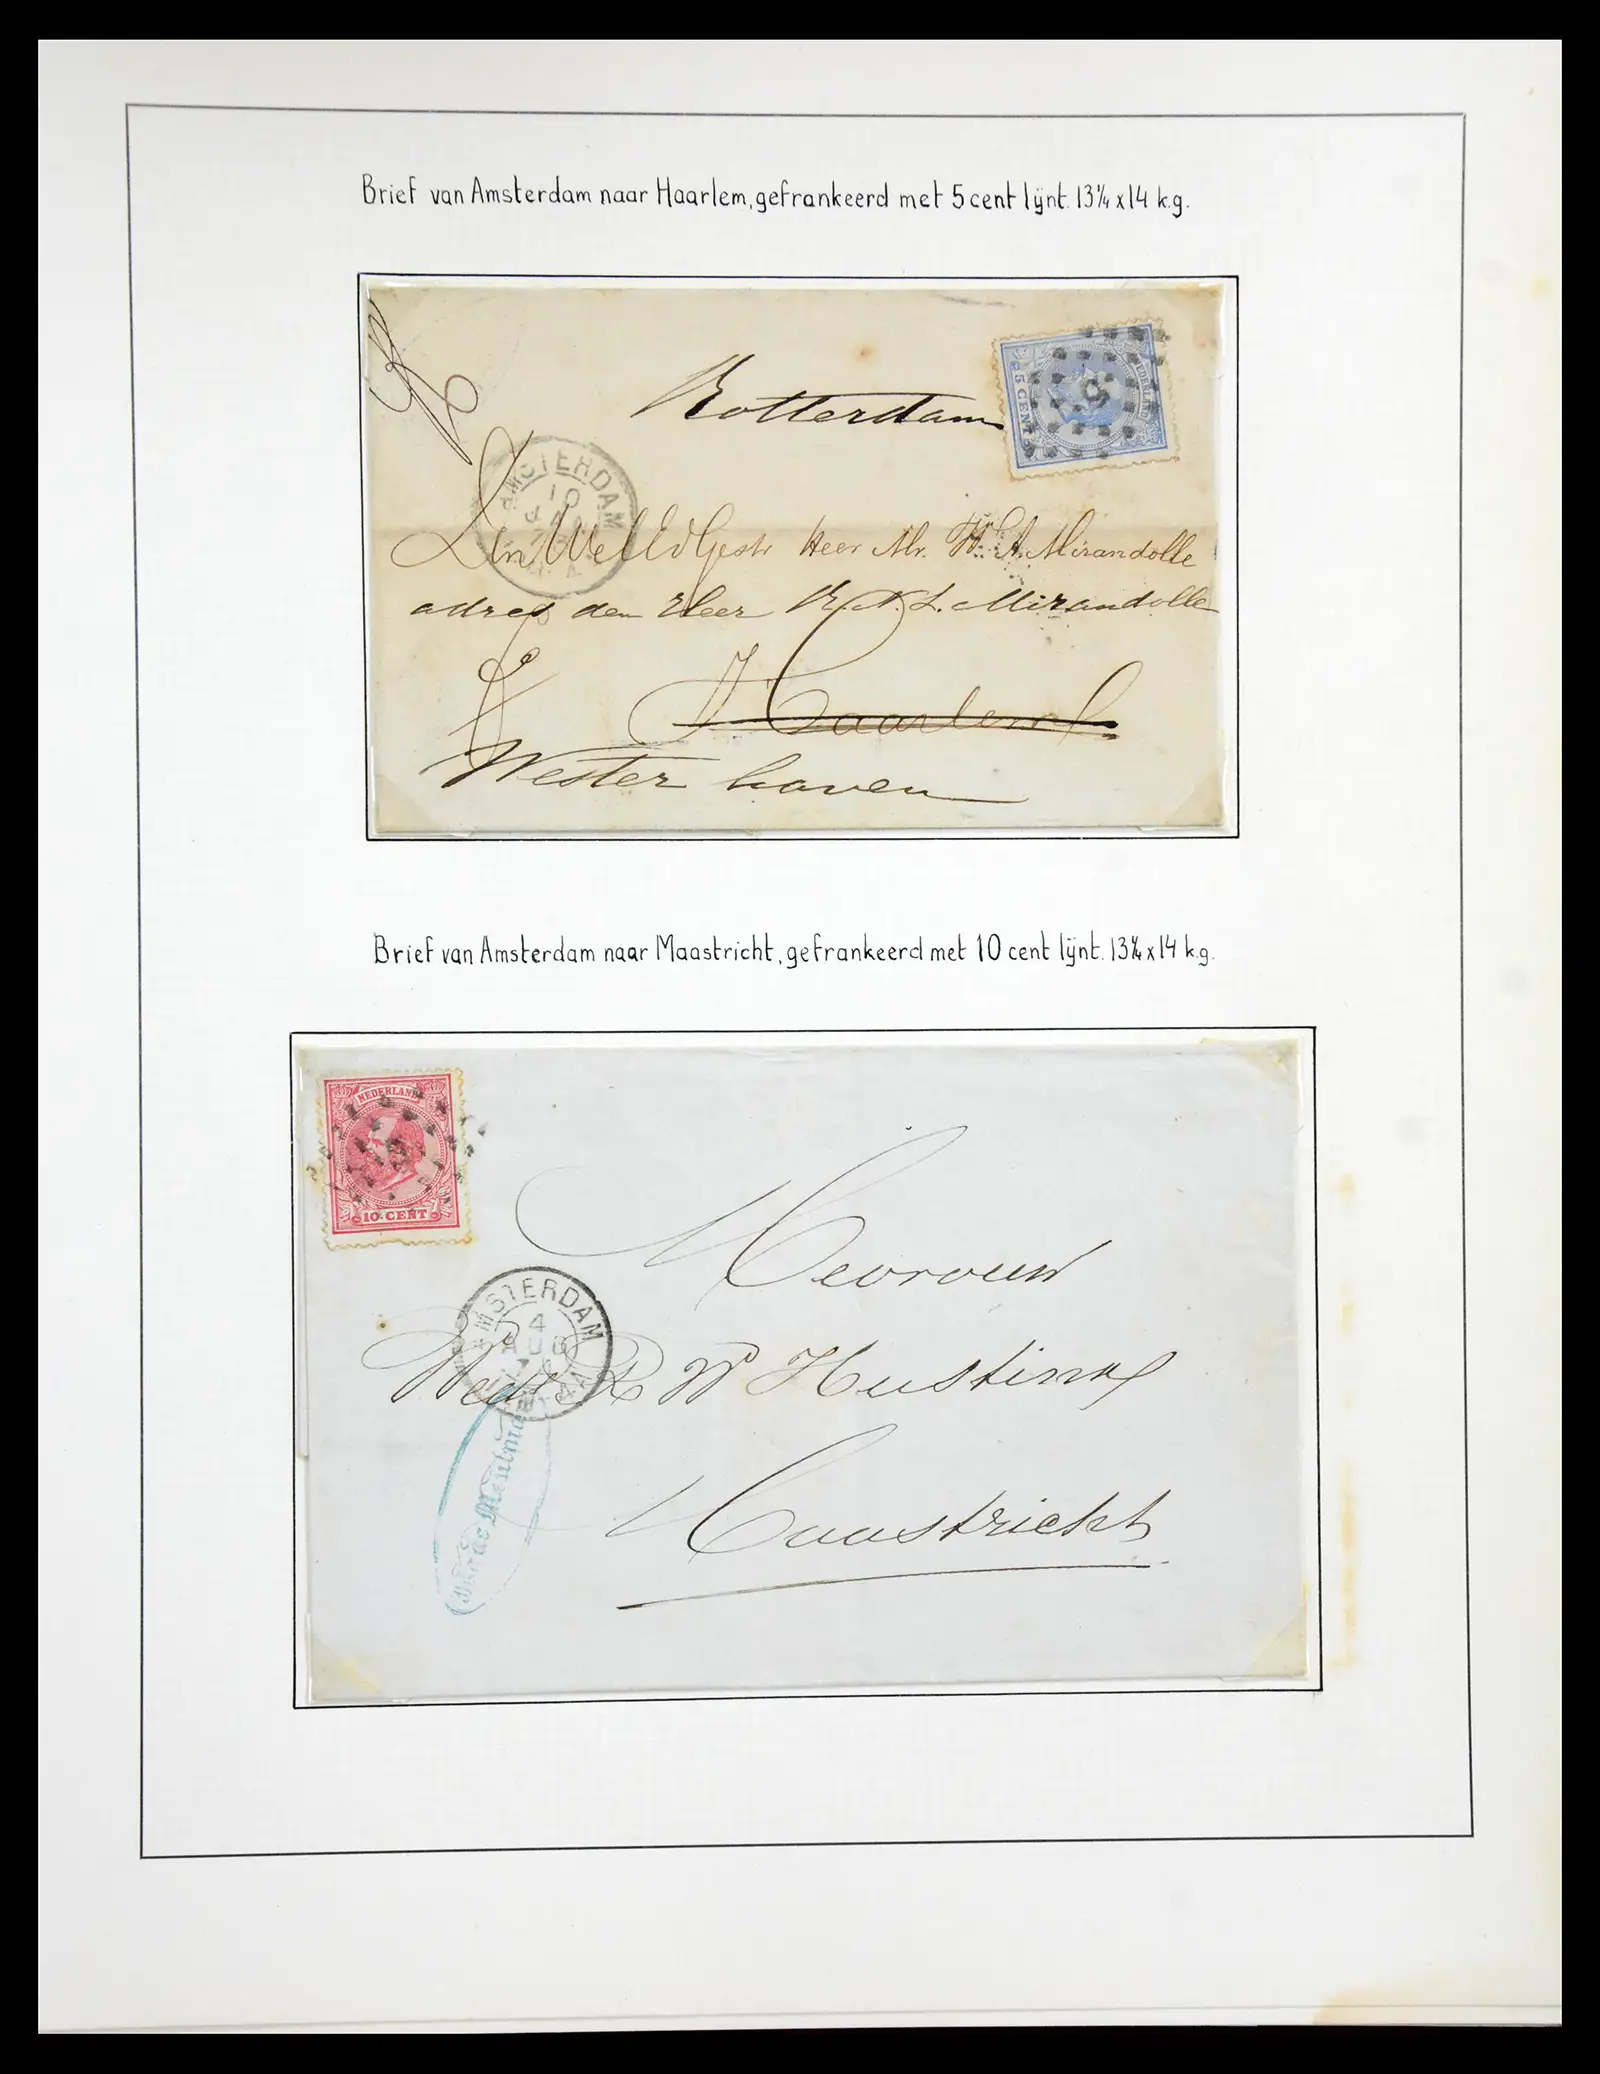 Brief van Amsterdam naar Haarlem, gefrankeerd met 5 cent lijnt. 13¼ x 14 k.g.
Rotterdam
NEDERLAND
5 CENT
5
AMSTERDAM
10
Den WelEdGestr Heer Mr. W. A. Mirandolle
adres den Heer R. N. L. Mirandolle
Haarlem
Wester haven
Brief van Amsterdam naar Maastricht, gefrankeerd met 10 cent lijnt. 13¼ x 14 k.g.
NEDERLAND
10 CENT
Mevrouw
AMSTERDAM
4
AUG
Wed R W Hustinx
Maastricht